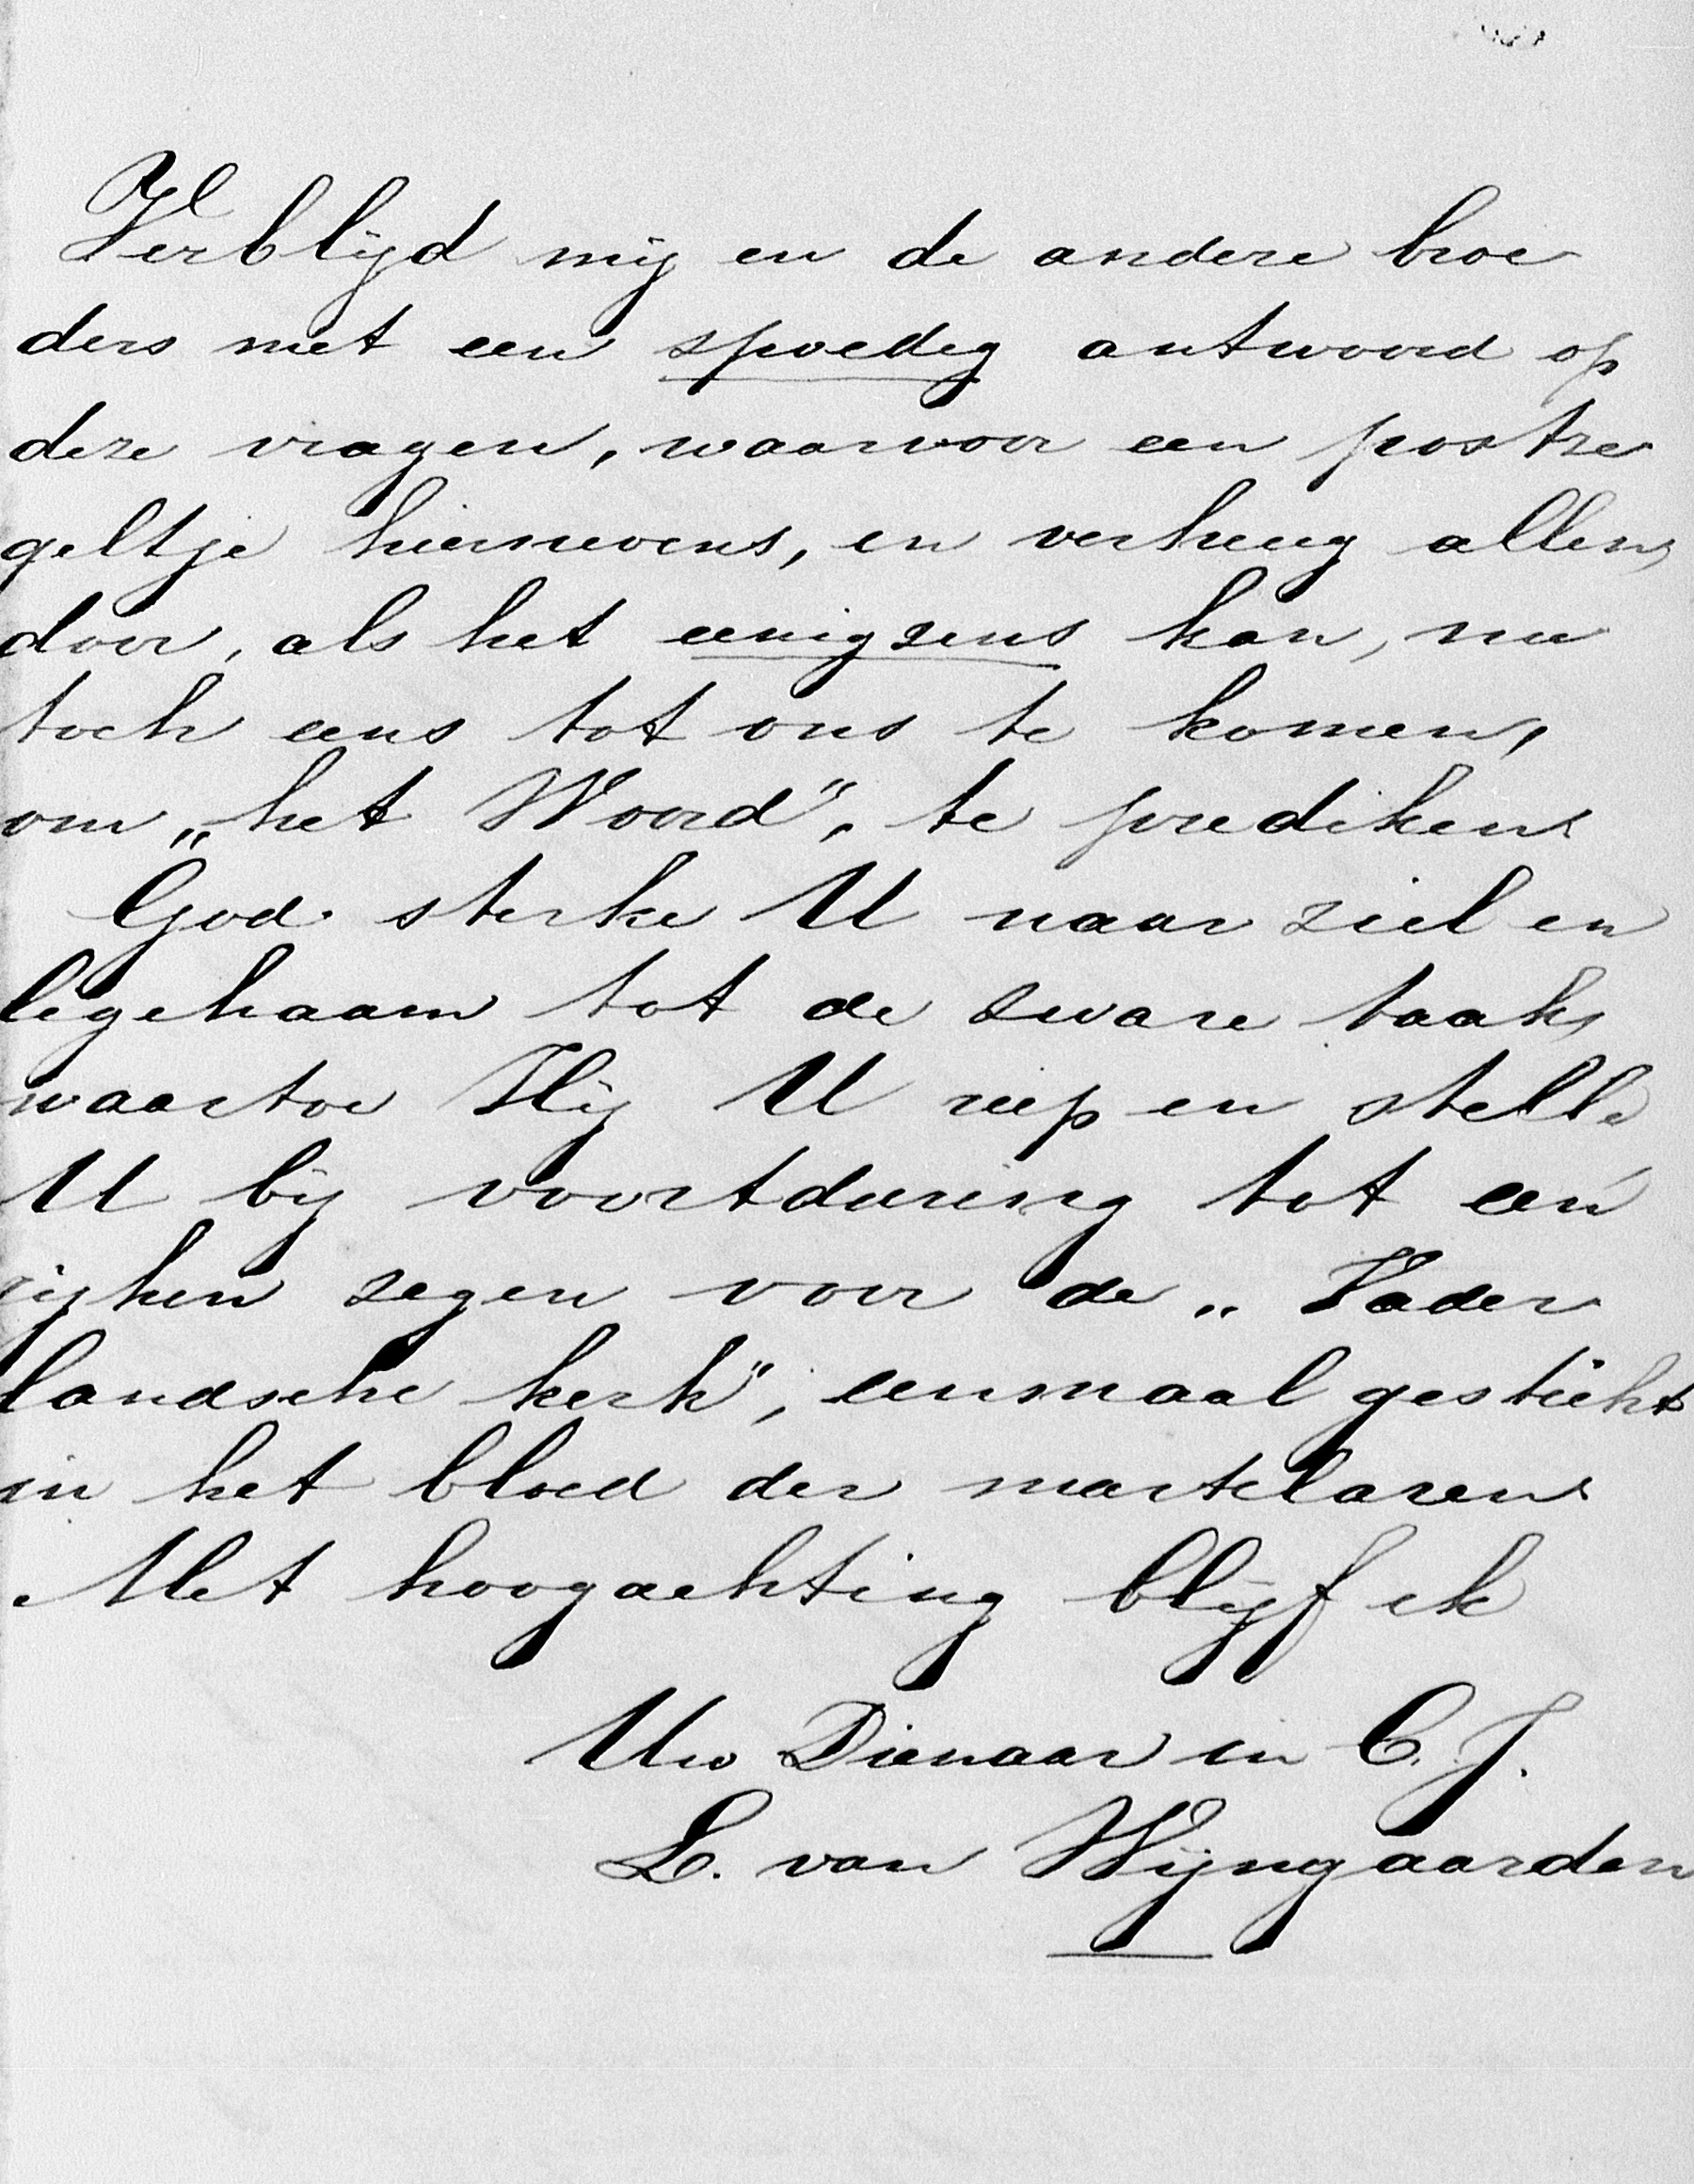 Verblijd mij en de andere broe
ders met een spoedig antwoord op
deze vragen, waarvoor een postze
geltje hiernevens, en verheug allen,
door, als het eenigzens kan, nu
toch eens tot ons te komen,
om „het Woord", te prediken.
God sterke U naar ziel en
ligchaam tot de zware taak,
waartoe Hij U riep en stelle
U bij voortduring tot een
rijken zegen voor de „Vader
landsche kerk", eenmaal gesticht
in het bloed der martelaren.
Met hoogachting blijf ik
Uw Dienaar in C. J.
L. van Wijngaarden